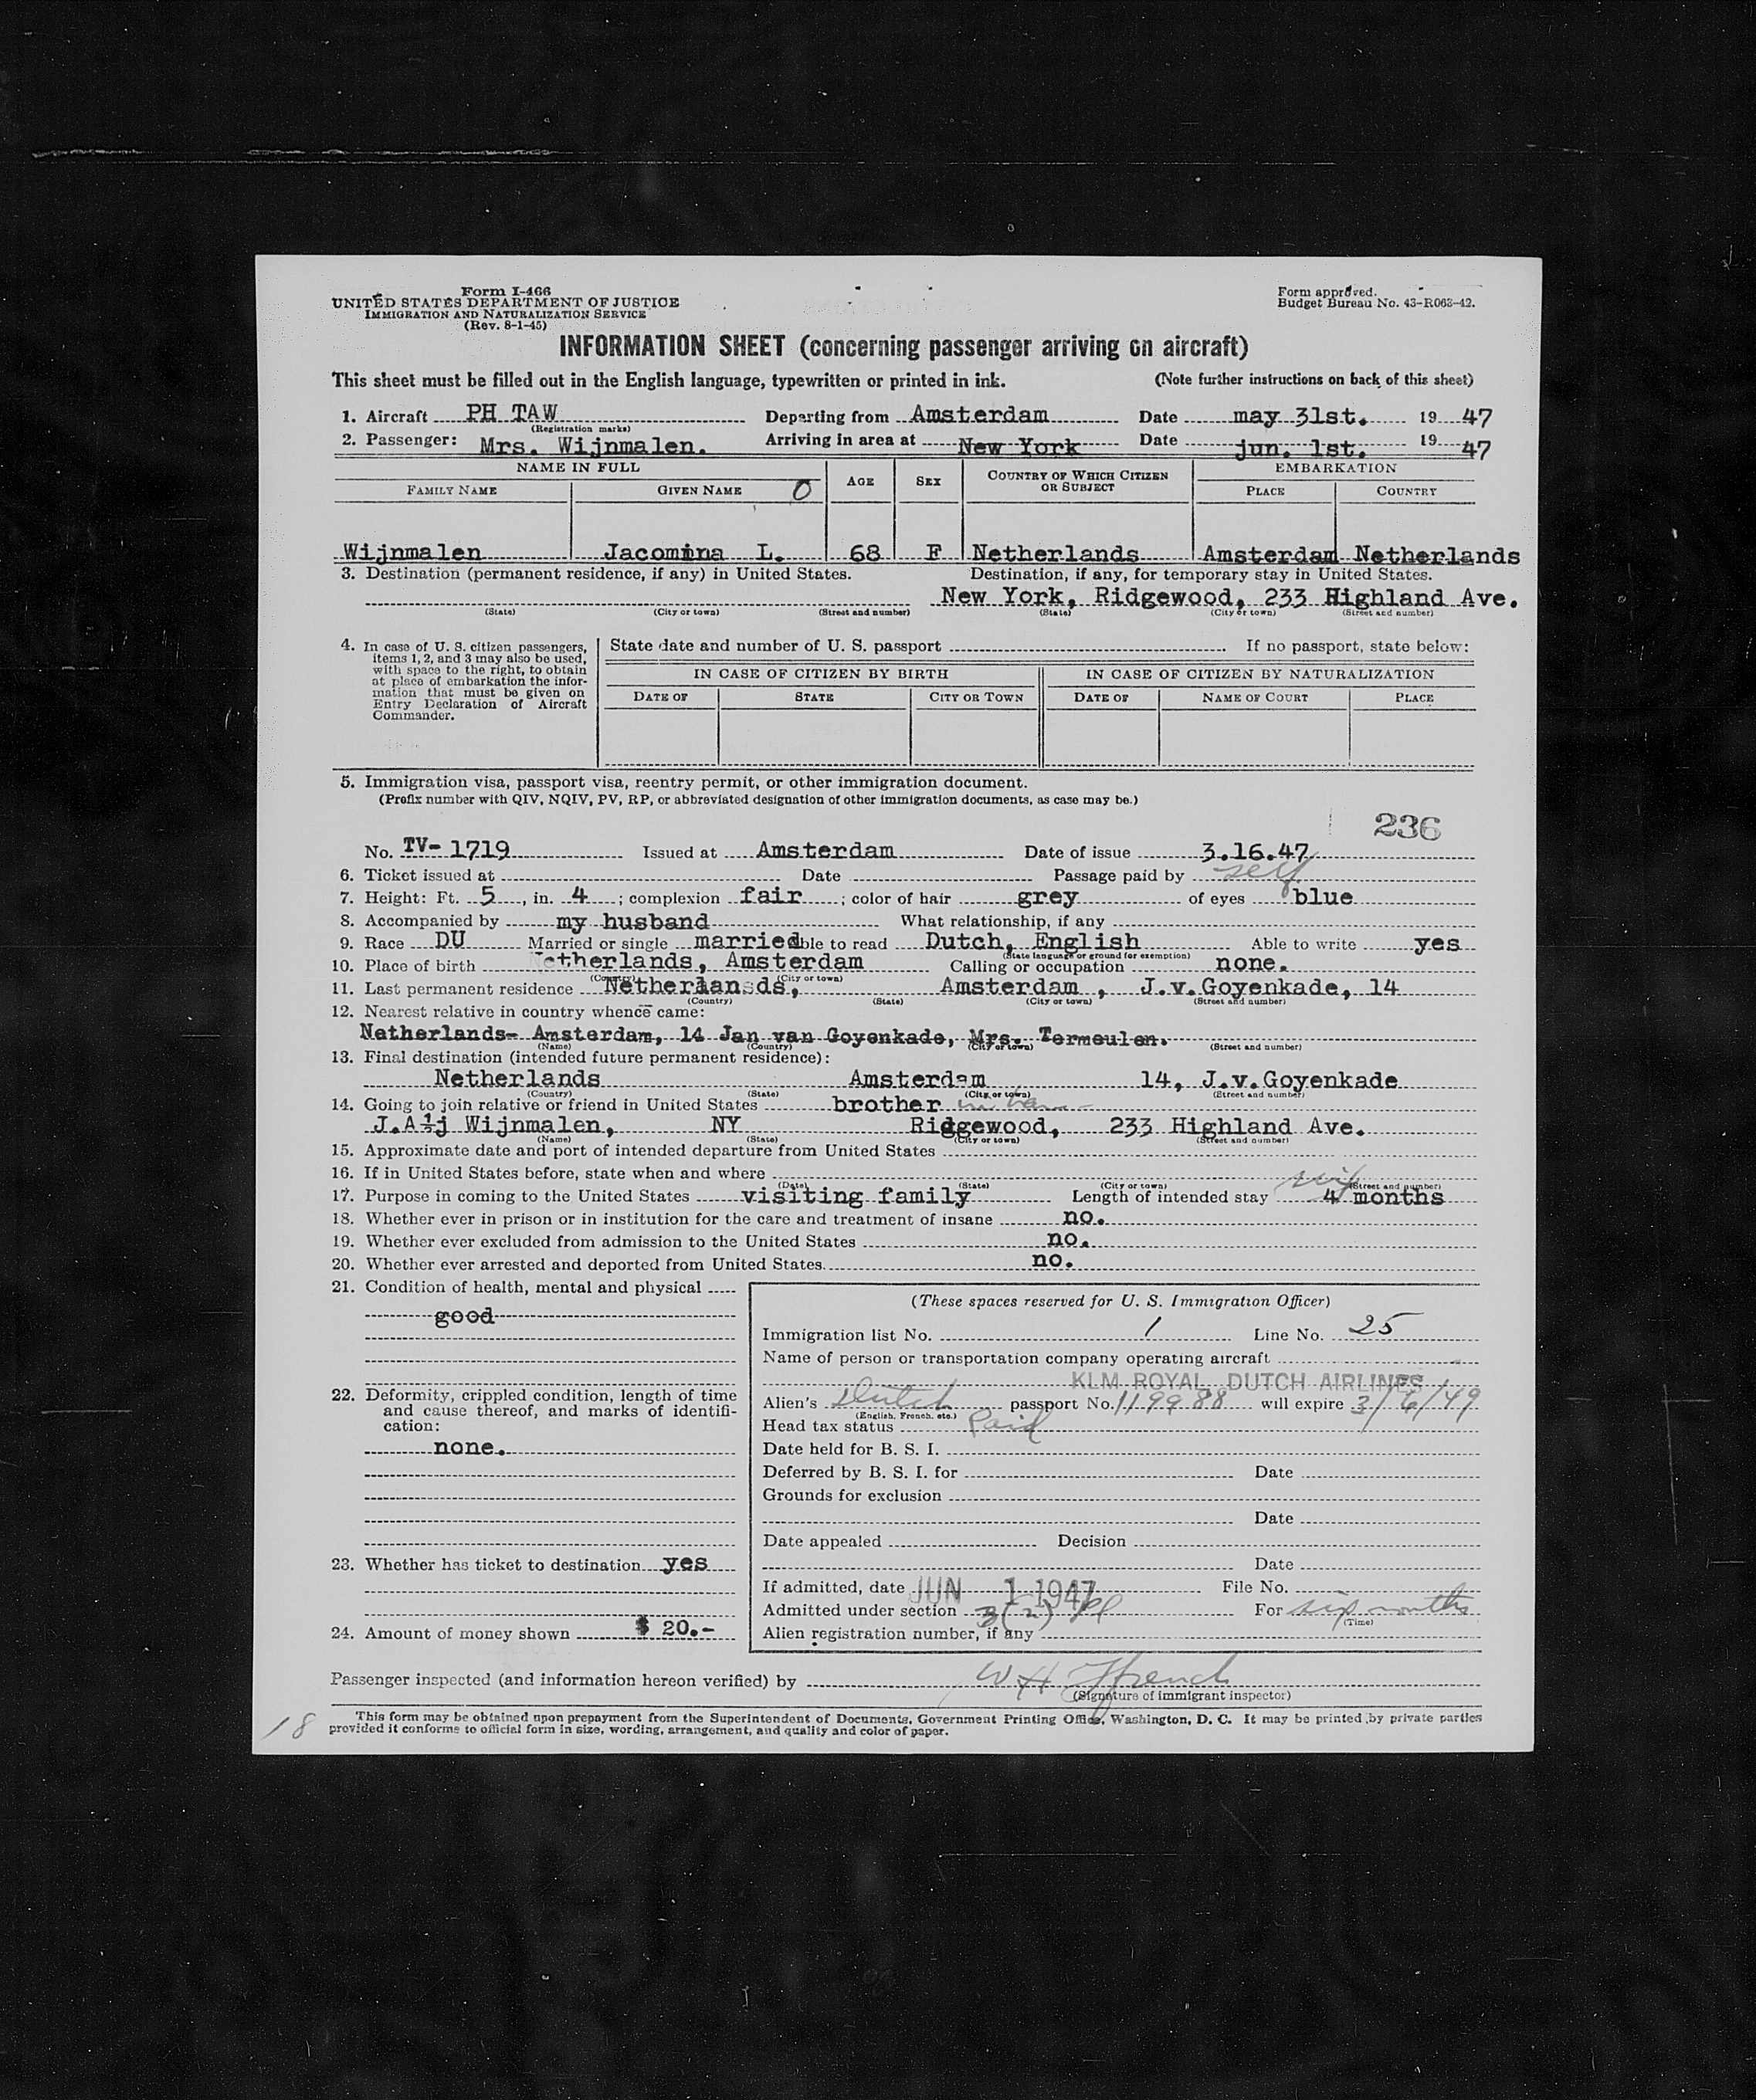 Form I-466
UNITED STATES DEPARTMENT OF JUSTICE
IMMIGRATION AND NATURALIZATION SERVICE
(Rev. 8-1-45)
Form approved.
Budget Bureau No. 43-R063-42.
INFORMATION SHEET (concerning passenger arriving on aircraft)
This sheet must be filled out in the English language, typewritten or printed in ink. (Note further instructions on back of this sheet)
1. Aircraft PH TAW Departing from Amsterdam Date may 31st. 19 47
(Registration marks)
2. Passenger: Mrs. Wijnmalen. Arriving in area at New York Date jun. 1st. 19 47
NAME IN FULL AGE SEX COUNTRY OF WHICH CITIZEN OR SUBJECT EMBARKATION
FAMILY NAME GIVEN NAME O PLACE COUNTRY
Wijnmalen Jacomina L. 68 F Netherlands Amsterdam Netherlands
3. Destination (permanent residence, if any) in United States. Destination, if any, for temporary stay in United States.
New York, Ridgewood, 233 Highland Ave.
(State) (City or town) (Street and number) (State) (City or town) (Street and number)
4. In case of U. S. citizen passengers, items 1, 2, and 3 may also be used, with space to the right, to obtain at place of embarkation the information that must be given on Entry Declaration of Aircraft Commander.
State date and number of U. S. passport If no passport, state below:
IN CASE OF CITIZEN BY BIRTH IN CASE OF CITIZEN BY NATURALIZATION
DATE OF STATE CITY OR TOWN DATE OF NAME OF COURT PLACE
5. Immigration visa, passport visa, reentry permit, or other immigration document.
(Prefix number with QIV, NQIV, PV, RP, or abbreviated designation of other immigration documents, as case may be.)
236
No. TV-1719 Issued at Amsterdam Date of issue 3.16.47
6. Ticket issued at Date Passage paid by self
7. Height: Ft. 5, in. 4; complexion fair; color of hair grey of eyes blue
8. Accompanied by my husband What relationship, if any
9. Race DU Married or single married able to read Dutch, English Able to write yes
(State language or ground for exemption)
10. Place of birth Netherlands, Amsterdam Calling or occupation none.
(Country) (City or town)
11. Last permanent residence Netherlansds, Amsterdam, J.v.Goyenkade, 14
(Country) (State) (City or town) (Street and number)
12. Nearest relative in country whence came:
Netherlands- Amsterdam, 14 Jan van Goyenkade, Mrs. Termeulen.
(Name) (Country) (City or town) (Street and number)
13. Final destination (intended future permanent residence):
Netherlands Amsterdam 14, J.v.Goyenkade
(Country) (State) (City or town) (Street and number)
14. Going to join relative or friend in United States brother
J.A½j Wijnmalen, NY Ridgewood, 233 Highland Ave.
(Name) (State) (City or town) (Street and number)
15. Approximate date and port of intended departure from United States
16. If in United States before, state when and where
(Date) (State) (City or town) (Street and number)
six
17. Purpose in coming to the United States visiting family Length of intended stay 4 months
18. Whether ever in prison or in institution for the care and treatment of insane no.
19. Whether ever excluded from admission to the United States no.
20. Whether ever arrested and deported from United States. no.
21. Condition of health, mental and physical
good
22. Deformity, crippled condition, length of time and cause thereof, and marks of identification:
none.
23. Whether has ticket to destination yes
24. Amount of money shown $ 20.-
(These spaces reserved for U. S. Immigration Officer)
Immigration list No. 1 Line No. 25
Name of person or transportation company operating aircraft
KLM ROYAL DUTCH AIRLINES
Alien's Dutch passport No. 119988 will expire 3/6/49
(English, French, etc.)
Head tax status Paid
Date held for B. S. I.
Deferred by B. S. I. for Date
Grounds for exclusion
Date
Date appealed Decision
Date
If admitted, date JUN 1 1947 File No.
Admitted under section 3(2) For six months
(Time)
Alien registration number, if any
Passenger inspected (and information hereon verified) by W H Ffrench
(Signature of immigrant inspector)
This form may be obtained upon prepayment from the Superintendent of Documents, Government Printing Office, Washington, D. C. It may be printed by private parties
provided it conforms to official form in size, wording, arrangement, and quality and color of paper.
18